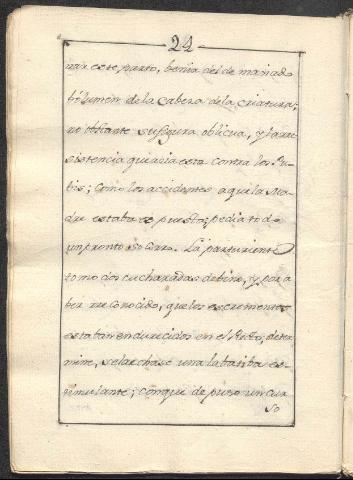 22
nar este, parto, benia del de maciado
bólumen de la Cabeza de la criatura;
no obstante su figura oblicua, y la rre
sistencia que acia esta contra los Pu
bis; como los accidentes a que la Ma
dre estaba expuesta; pedia todo
un pronto Socorro. La parturiente
tomo dos cucharadas de bino, y por a
ber rreconocido, que los escrementos
estaban endurecidos en el Recto; deter
mine, se le echase una labatiba es
timulante; con que de puso un cur
so